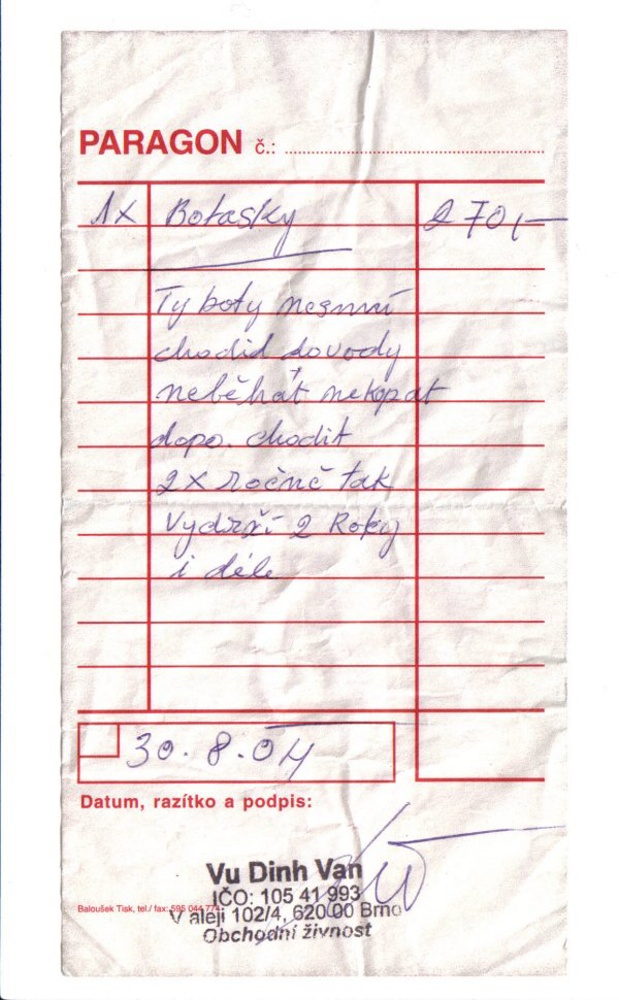 PARAGON č.:
1x Botasky 270,-
Ty boty nesmí
chodid dovody
neběhat nekopat
dopo. chodit
2x ročně tak
Vydrží 2 Roky
i déle
30.8.04
Datum, razítko a podpis:
Vu Dinh Van
IČO: 105 41 993
Baloušek Tisk, tel./ fax: 595 044 774
V aleji 102/4, 620 00 Brno
Obchodní živnost